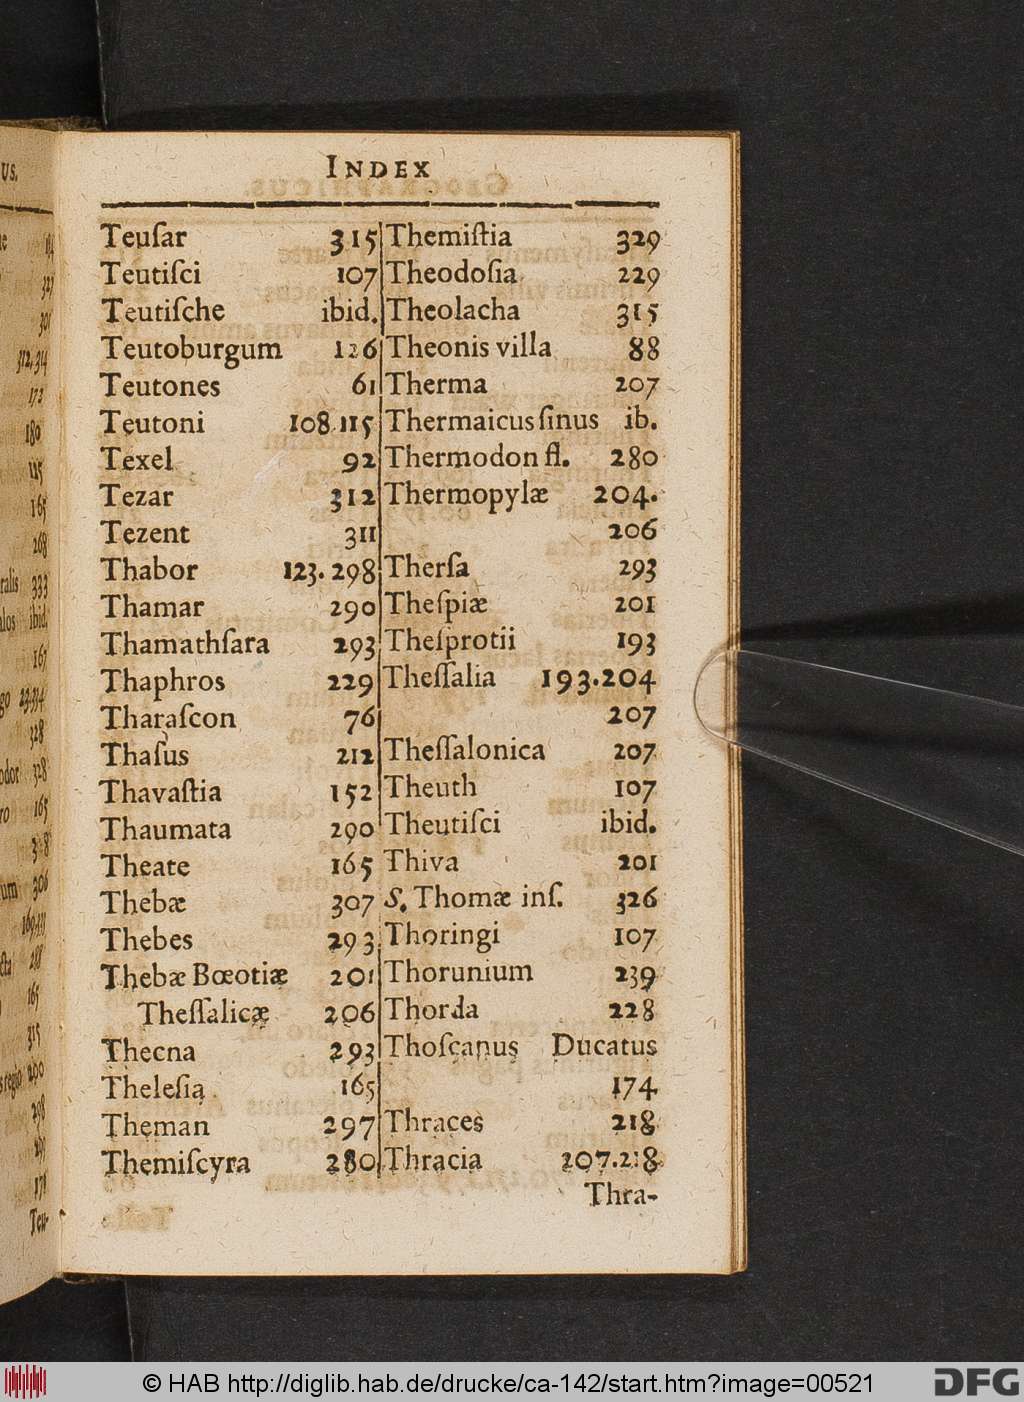 INDEX
Teuſar 315
Teutiſci 107
Teutiſche ibid.
Teutoburgum 126
Teutones 61
Teutoni 108.115
Texel 92
Tezar 312
Tezent 311
Thabor 123.298
Thamar 290
Thamathſara 293
Thaphros 229
Tharaſcon 76
Thaſus 212
Thavaſtia 152
Thaumata 290
Theate 165
Thebæ 307
Thebes 293
Thebæ Bœotiæ 201
Theſſalicæ 206
Thecna 293
Theleſia 165
Theman 297
Themiſcyra 280
Themiſtia 329
Theodoſia 229
Theolacha 315
Theonis villa 88
Therma 207
Thermaicus ſinus ib.
Thermodon fl. 280
Thermopylæ 204.
206
Therſa 293
Theſpiæ 201
Theſprotii 193
Theſſalia 193.204
207
Theſſalonica 207
Theuth 107
Theutiſci ibid.
Thiva 201
S. Thomæ inſ. 326
Thoringi 107
Thorunium 239
Thorda 228
Thoſcanus Ducatus
174
Thraces 218
Thracia 207.218
Thra-
us.
312, 314
173
180
115
165
268
ralis 333
los ibid.
167
328
165
306
315
290
Teu-
© HAB http://diglib.hab.de/drucke/ca-142/start.htm?image=00521
DFG